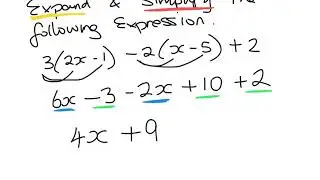 Expand & Simplify the
following Expression.
3(2x-1) -2(x-5) + 2
6x -3 -2x +10 +2
4x + 9